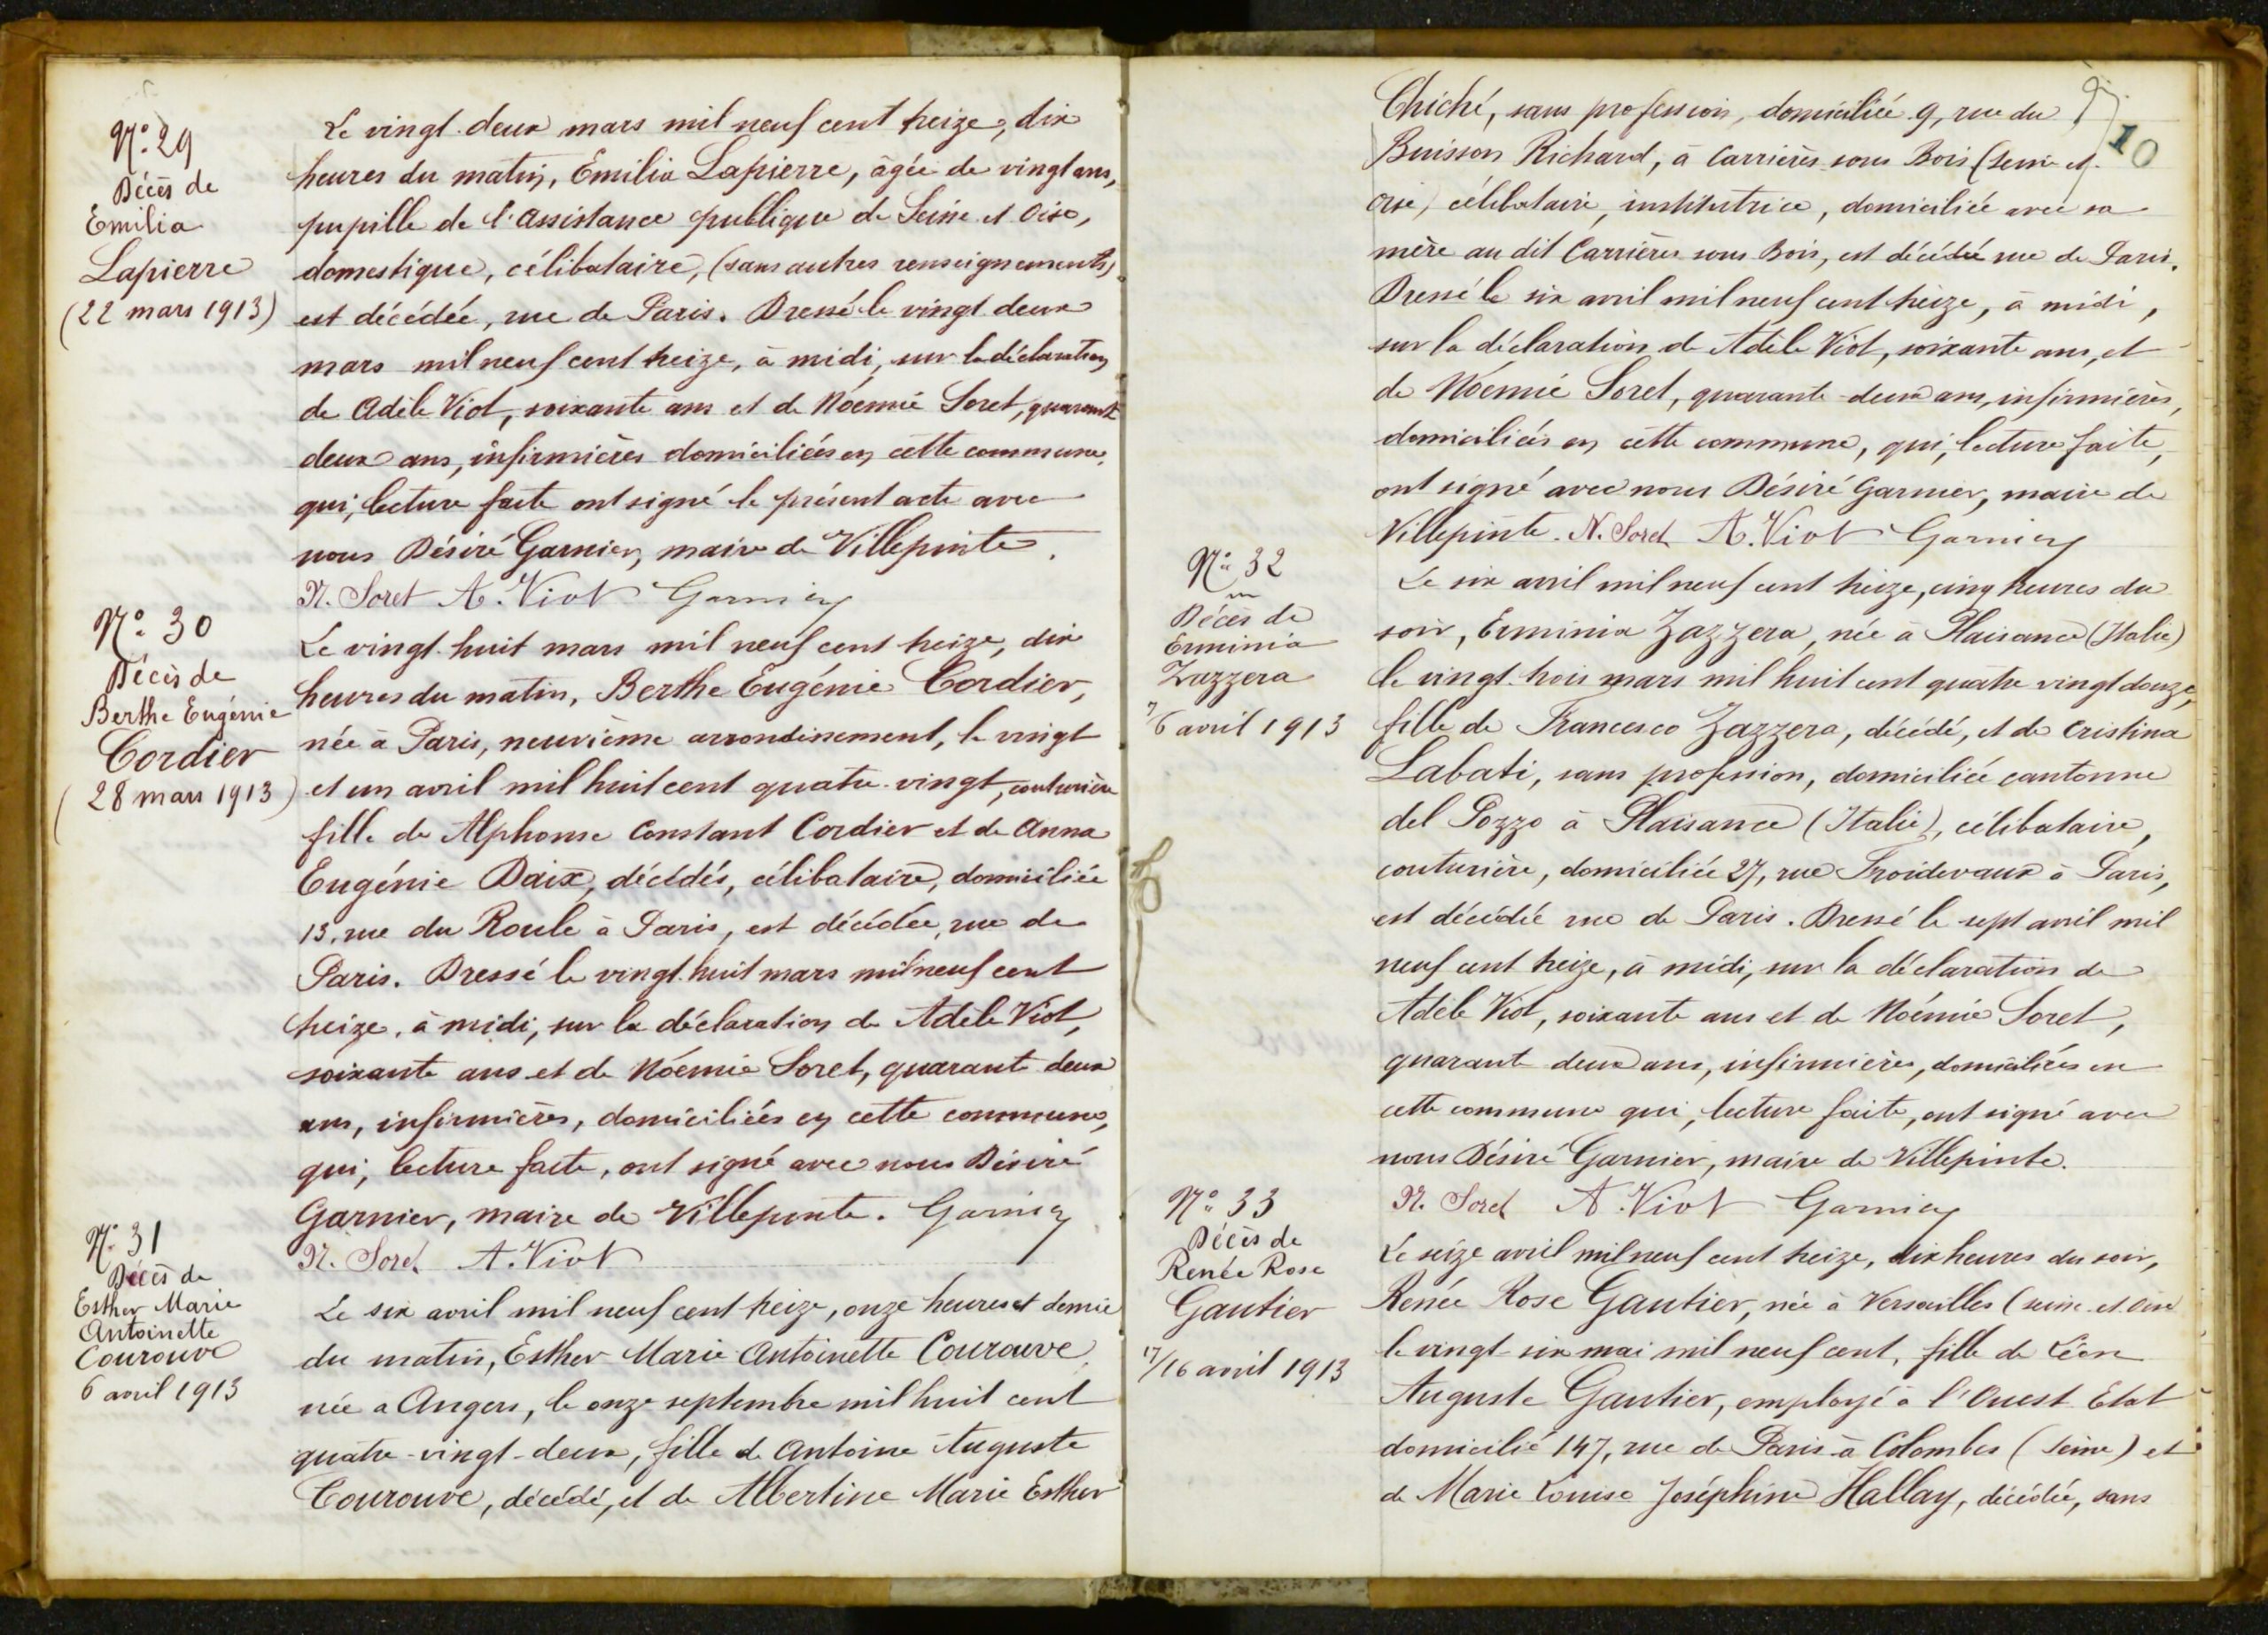 N° 29
Décès de
Emilia
Lapierre
(22 mars 1913)
Le vingt-deux mars mil neuf cent treize, dix
heures du matin, Emilia Lapierre, âgée de vingt ans,
pupille de l'assistance publique de Seine et Oise,
domestique, célibataire, (sans autres renseignements)
est décédée, rue de Paris. Dressé le vingt deux
mars mil neuf cent treize, à midi, sur la déclaration
de Adèle Viot, soixante ans et de Noémie Soret, quarante
deux ans, infirmières domiciliées en cette commune,
qui, lecture faite ont signé le présent acte avec
nous Désiré Garnier, maire de Villepinte.
N. Soret A. Viot Garnier
N° 30
Décès de
Berthe Eugénie
Cordier
(28 mars 1913)
Le vingt-huit mars mil neuf cent treize, dix
heures du matin, Berthe Eugénie Cordier,
née à Paris, neuvième arrondissement, le vingt
et un avril mil huit cent quatre-vingt, couturière
fille de Alphonse Constant Cordier et de Anna
Eugénie Daix, décédés, célibataire, domiciliée
13, rue du Roule à Paris, est décédée, rue de
Paris. Dressé le vingt-huit mars mil neuf cent
treize, à midi, sur la déclaration de Adèle Viot,
soixante ans et de Noémie Soret, quarante deux
ans, infirmières, domiciliées en cette commune,
qui, lecture faite, ont signé avec nous Désiré
Garnier, maire de Villepinte. Garnier
N. Soret A. Viot
N° 31
Décès de
Esther Marie
Antoinette
Courouve
6 avril 1913
Le six avril mil neuf cent treize, onze heures et demie
du matin, Esther Marie Antoinette Courouve,
née a Angers, le onze septembre mil huit cent
quatre-vingt-deux, fille de Antoine Auguste
Courouve, décédé, et de Albertine Marie Esther
10
Chiché, sans profession, domiciliée 9, rue du
Buisson Richard, à Carrières sous Bois (Seine et
Oise), célibataire, institutrice, domiciliée avec sa
mère au dit Carrières sous Bois, est décédée rue de Paris.
Dressé le six avril mil neuf cent treize, à midi,
sur la déclaration de Adèle Viot, soixante ans, et
de Noémie Soret, quarante-deux ans, infirmières,
domiciliées en cette commune, qui, lecture faite,
ont signé avec nous Désiré Garnier, maire de
Villepinte. N. Soret A. Viot Garnier
N° 32
Décès de
Erminia
Zazzera
7/6 avril 1913
Le six avril mil neuf cent treize, cinq heures du
soir, Erminia Zazzera, née à Plaisance (Italie)
le vingt-trois mars mil huit cent quatre vingt douze,
fille de Francesco Zazzera, décédé, et de Cristina
Labati, sans profession, domiciliée cantonne
del Pozzo à Plaisance (Italie), célibataire,
couturière, domiciliée 27, rue Froidevaux à Paris,
est décédée rue de Paris. Dressé le sept avril mil
neuf cent treize, à midi, sur la déclaration de
Adèle Viot, soixante ans et de Noémie Soret,
quarante deux ans, infirmières, domiciliées en
cette commune qui, lecture faite, ont signé avec
nous Désiré Garnier, maire de Villepinte.
N. Soret A. Viot Garnier
N° 33
Décès de
Renée Rose
Gautier
17/16 avril 1913
Le seize avril mil neuf cent treize, dix heures du soir,
Renée Rose Gautier, née à Versailles (Seine et Oise
le vingt-six mai mil neuf cent, fille de Léon
Auguste Gautier, employé à l'Ouest Etat
domicilié 147, rue de Paris à Colombes (Seine) et
de Marie Louise Joséphine Hallay, décédée, sans